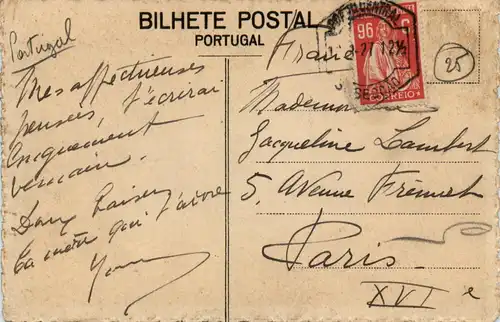 BILHETE POSTAL
PORTUGAL
Portugal
Très affectueuses
pensées, t'écrirai
longuement
demain.
Doux baisers
ta mère qui t'adore
France
96 C
CORREIO
25
Mademoiselle
Jacqueline Lambert
5, Avenue Frémiet
Paris
XVI e